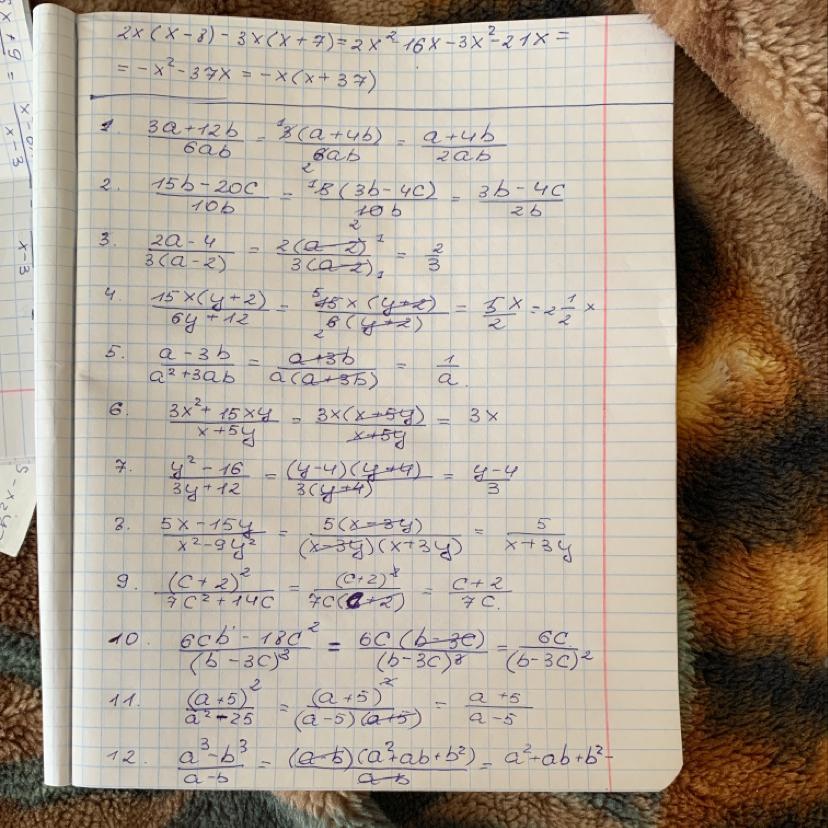 2x(x-8)-3x(x+7)=2x²-16x-3x²-21x=
=-x²-37x=-x(x+37)
1. (3a+12b)/(6ab) = (3(a+4b))/(6ab) = (a+4b)/(2ab)
2. (15b-20c)/(10b) = (5(3b-4c))/(10b) = (3b-4c)/(2b)
3. (2a-4)/(3(a-2)) = (2(a-2))/(3(a-2)) = 2/3
4. (15x(y+2))/(6y+12) = (15x(y+2))/(6(y+2)) = (5x)/2 = 2 1/2 x
5. (a-3b)/(a²+3ab) = (a+3b)/(a(a+3b)) = 1/a
6. (3x²+15xy)/(x+5y) = (3x(x+5y))/(x+5y) = 3x
7. (y²-16)/(3y+12) = ((y-4)(y+4))/(3(y+4)) = (y-4)/3
8. (5x-15y)/(x²-9y²) = (5(x-3y))/((x-3y)(x+3y)) = 5/(x+3y)
9. (c+2)²/(7c²+14c) = (c+2)²/(7c(c+2)) = (c+2)/(7c)
10. (6cb-18c²)/(b-3c)³ = (6c(b-3c))/(b-3c)³ = 6c/(b-3c)²
11. (a+5)²/(a²-25) = (a+5)²/((a-5)(a+5)) = (a+5)/(a-5)
12. (a³-b³)/(a-b) = ((a-b)(a²+ab+b²))/(a-b) = a²+ab+b²